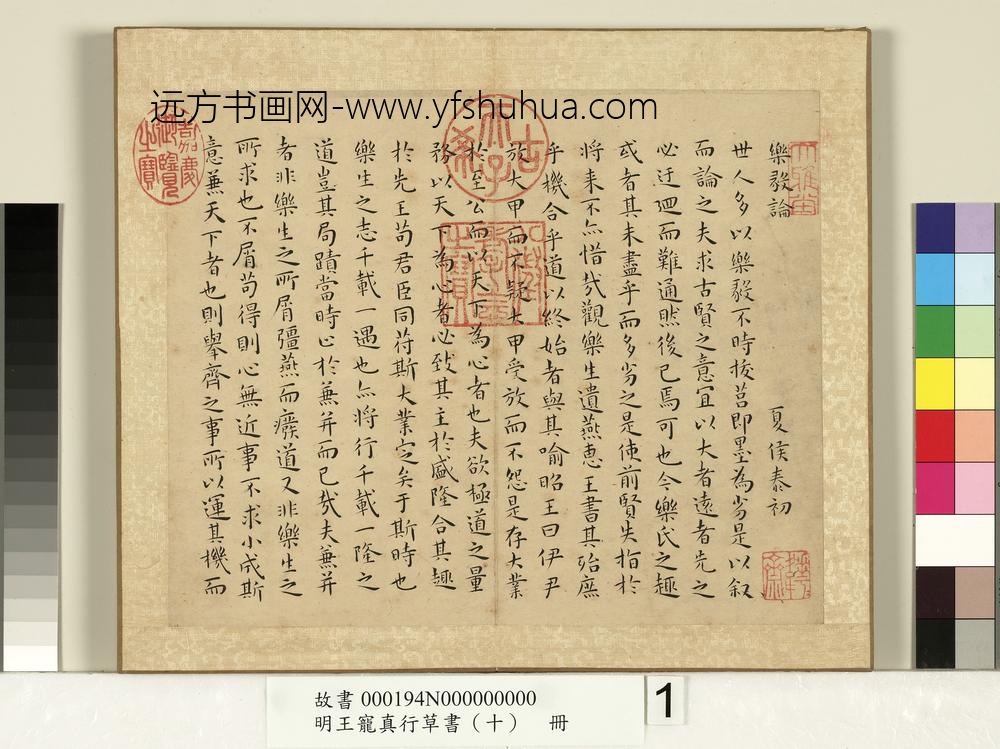 远方书画网-www.yfshuhua.com
樂毅論 夏侯泰初
世人多以樂毅不時拔莒即墨為劣是以叙
而論之夫求古賢之意宜以大者遠者先之
必迂迴而難通然後已焉可也今樂氏之趣
或者其未盡乎而多劣之是使前賢失指於
將来不亦惜哉觀樂生遺燕惠王書其殆庶
乎機合乎道以終始者與其喻昭王曰伊尹
放大甲而不疑大甲受放而不怨是存大業
於至公而以天下為心者也夫欲極道之量
務以天下為心者必致其主於盛隆合其趣
於先王苟君臣同苻斯大業定矣于斯時也
樂生之志千載一遇也亦將行千載一隆之
道豈其局蹟當時止於兼并而已哉夫兼并
者非樂生之所屑彊燕而癈道又非樂生之
所求也不屑苟得則心無近事不求小成斯
意兼天下者也則舉齊之事所以運其機而
古希天子
嘉慶御覽之寶
故書 000194N000000000
明王寵真行草書（十） 冊
1